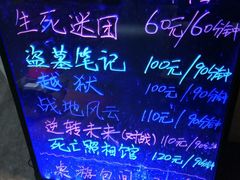 生死迷团 60元/60分钟
盗墓笔记 100元/90分钟
越狱 100元/90分钟
战地风云 110元/90分钟
逆转未来(对战) 110元/90分钟
死亡照相馆 120元/90分钟
桌游包间